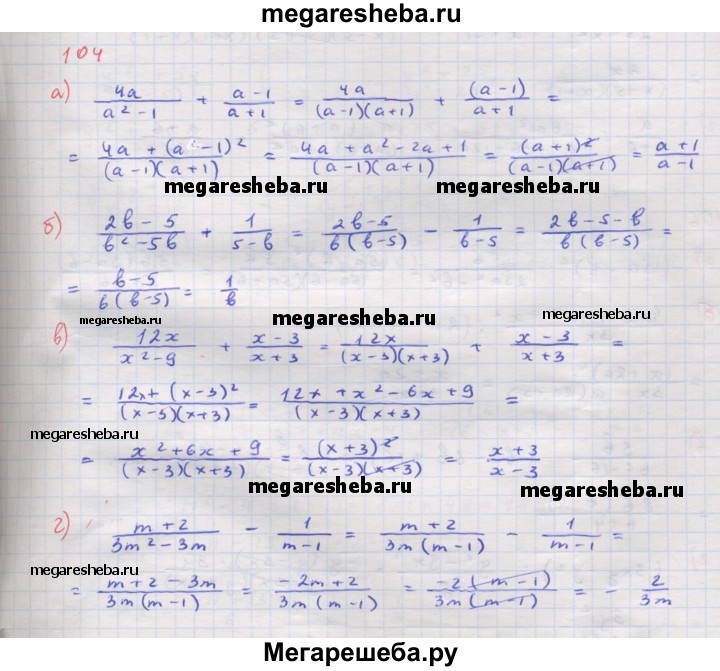 megaresheba.ru
104
а) 4a/(a² - 1) + (a - 1)/(a + 1) = 4a/((a - 1)(a + 1)) + (a - 1)/(a + 1) =
= (4a + (a - 1)²)/((a - 1)(a + 1)) = (4a + a² - 2a + 1)/((a - 1)(a + 1)) = (a + 1)²/((a - 1)(a + 1)) = (a + 1)/(a - 1)
megaresheba.ru megaresheba.ru
б) (2b - 5)/(b² - 5b) + 1/(5 - b) = (2b - 5)/(b(b - 5)) - 1/(b - 5) = (2b - 5 - b)/(b(b - 5)) =
= (b - 5)/(b(b - 5)) = 1/b
megaresheba.ru megaresheba.ru megaresheba.ru
в) 12x/(x² - 9) + (x - 3)/(x + 3) = 12x/((x - 3)(x + 3)) + (x - 3)/(x + 3) =
= (12x + (x - 3)²)/((x - 3)(x + 3)) = (12x + x² - 6x + 9)/((x - 3)(x + 3)) =
megaresheba.ru
= (x² + 6x + 9)/((x - 3)(x + 3)) = (x + 3)²/((x - 3)(x + 3)) = (x + 3)/(x - 3)
megaresheba.ru megaresheba.ru
г) (m + 2)/(3m² - 3m) - 1/(m - 1) = (m + 2)/(3m(m - 1)) - 1/(m - 1) =
megaresheba.ru
= (m + 2 - 3m)/(3m(m - 1)) = (-2m + 2)/(3m(m - 1)) = -2(m - 1)/(3m(m - 1)) = - 2/3m
Мегарешеба.ру